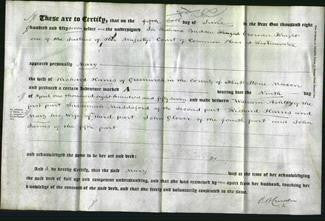 These are to Certify, that on the day of June in the Year One thousand eight
hundred and fifty before the undersigned Sir
one of the Justices of Her Majesty's Court of Common Pleas at Westminster
appeared personally Mary
the wife of Richard Harris of in the County of Mason
and produced a certain Indenture marked A bearing date the Ninth day
of April One thousand eight hundred and and made between William Ashley of the
first part of the second part Richard Harris and
Mary his wife of the third part John Glover of the fourth part and John
Harris of the fifth part
and acknowledged the same to be her act and deed:
And I do hereby Certify, that the said Mary was at the time of her acknowledging
the said deed of full age and competent understanding, and that she was examined by me apart from her husband, touching her
knowledge of the contents of the said deed, and that she freely and voluntarily consented to the same.